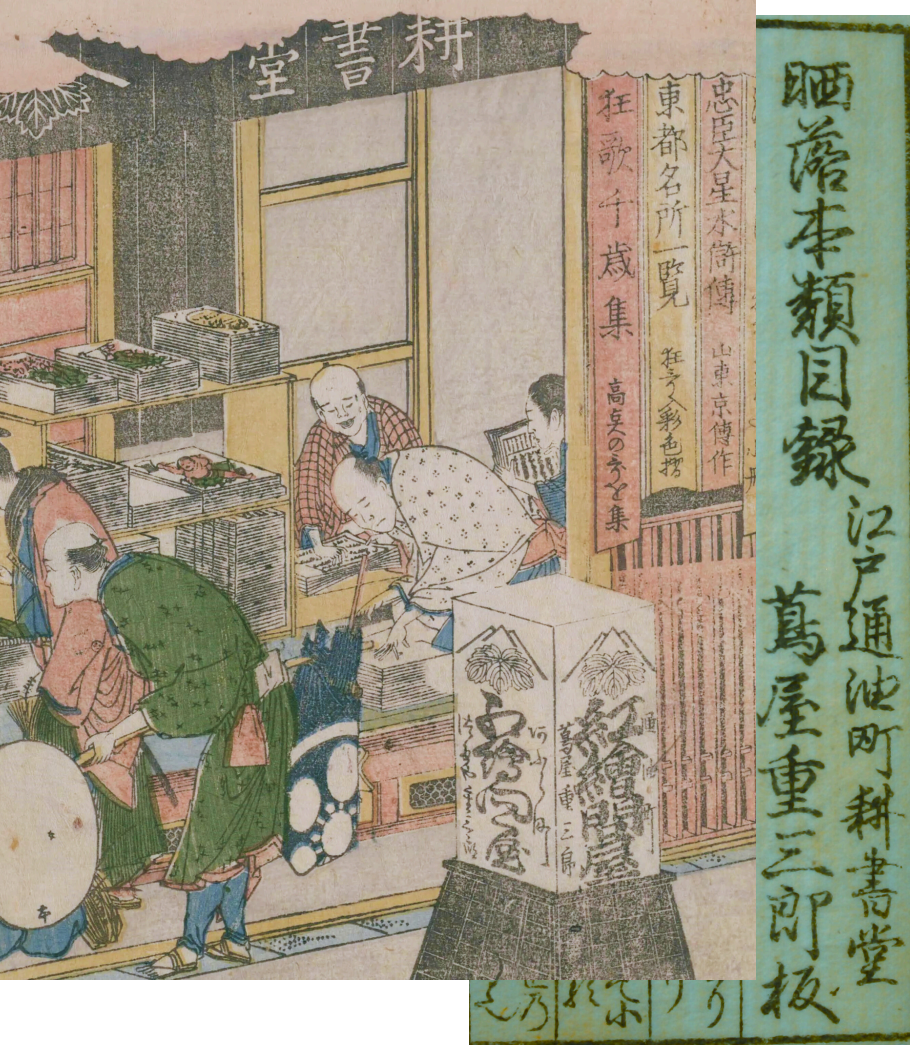 耕書堂
忠臣大星水滸傳 山東京傳作
東都名所一覧 狂哥入彩色摺
狂歌千歳集 高点の哥を集
通油町
紅繪問屋
蔦屋重三郎
晒落本類目録
江戸通油町耕書堂
蔦屋重三郎板